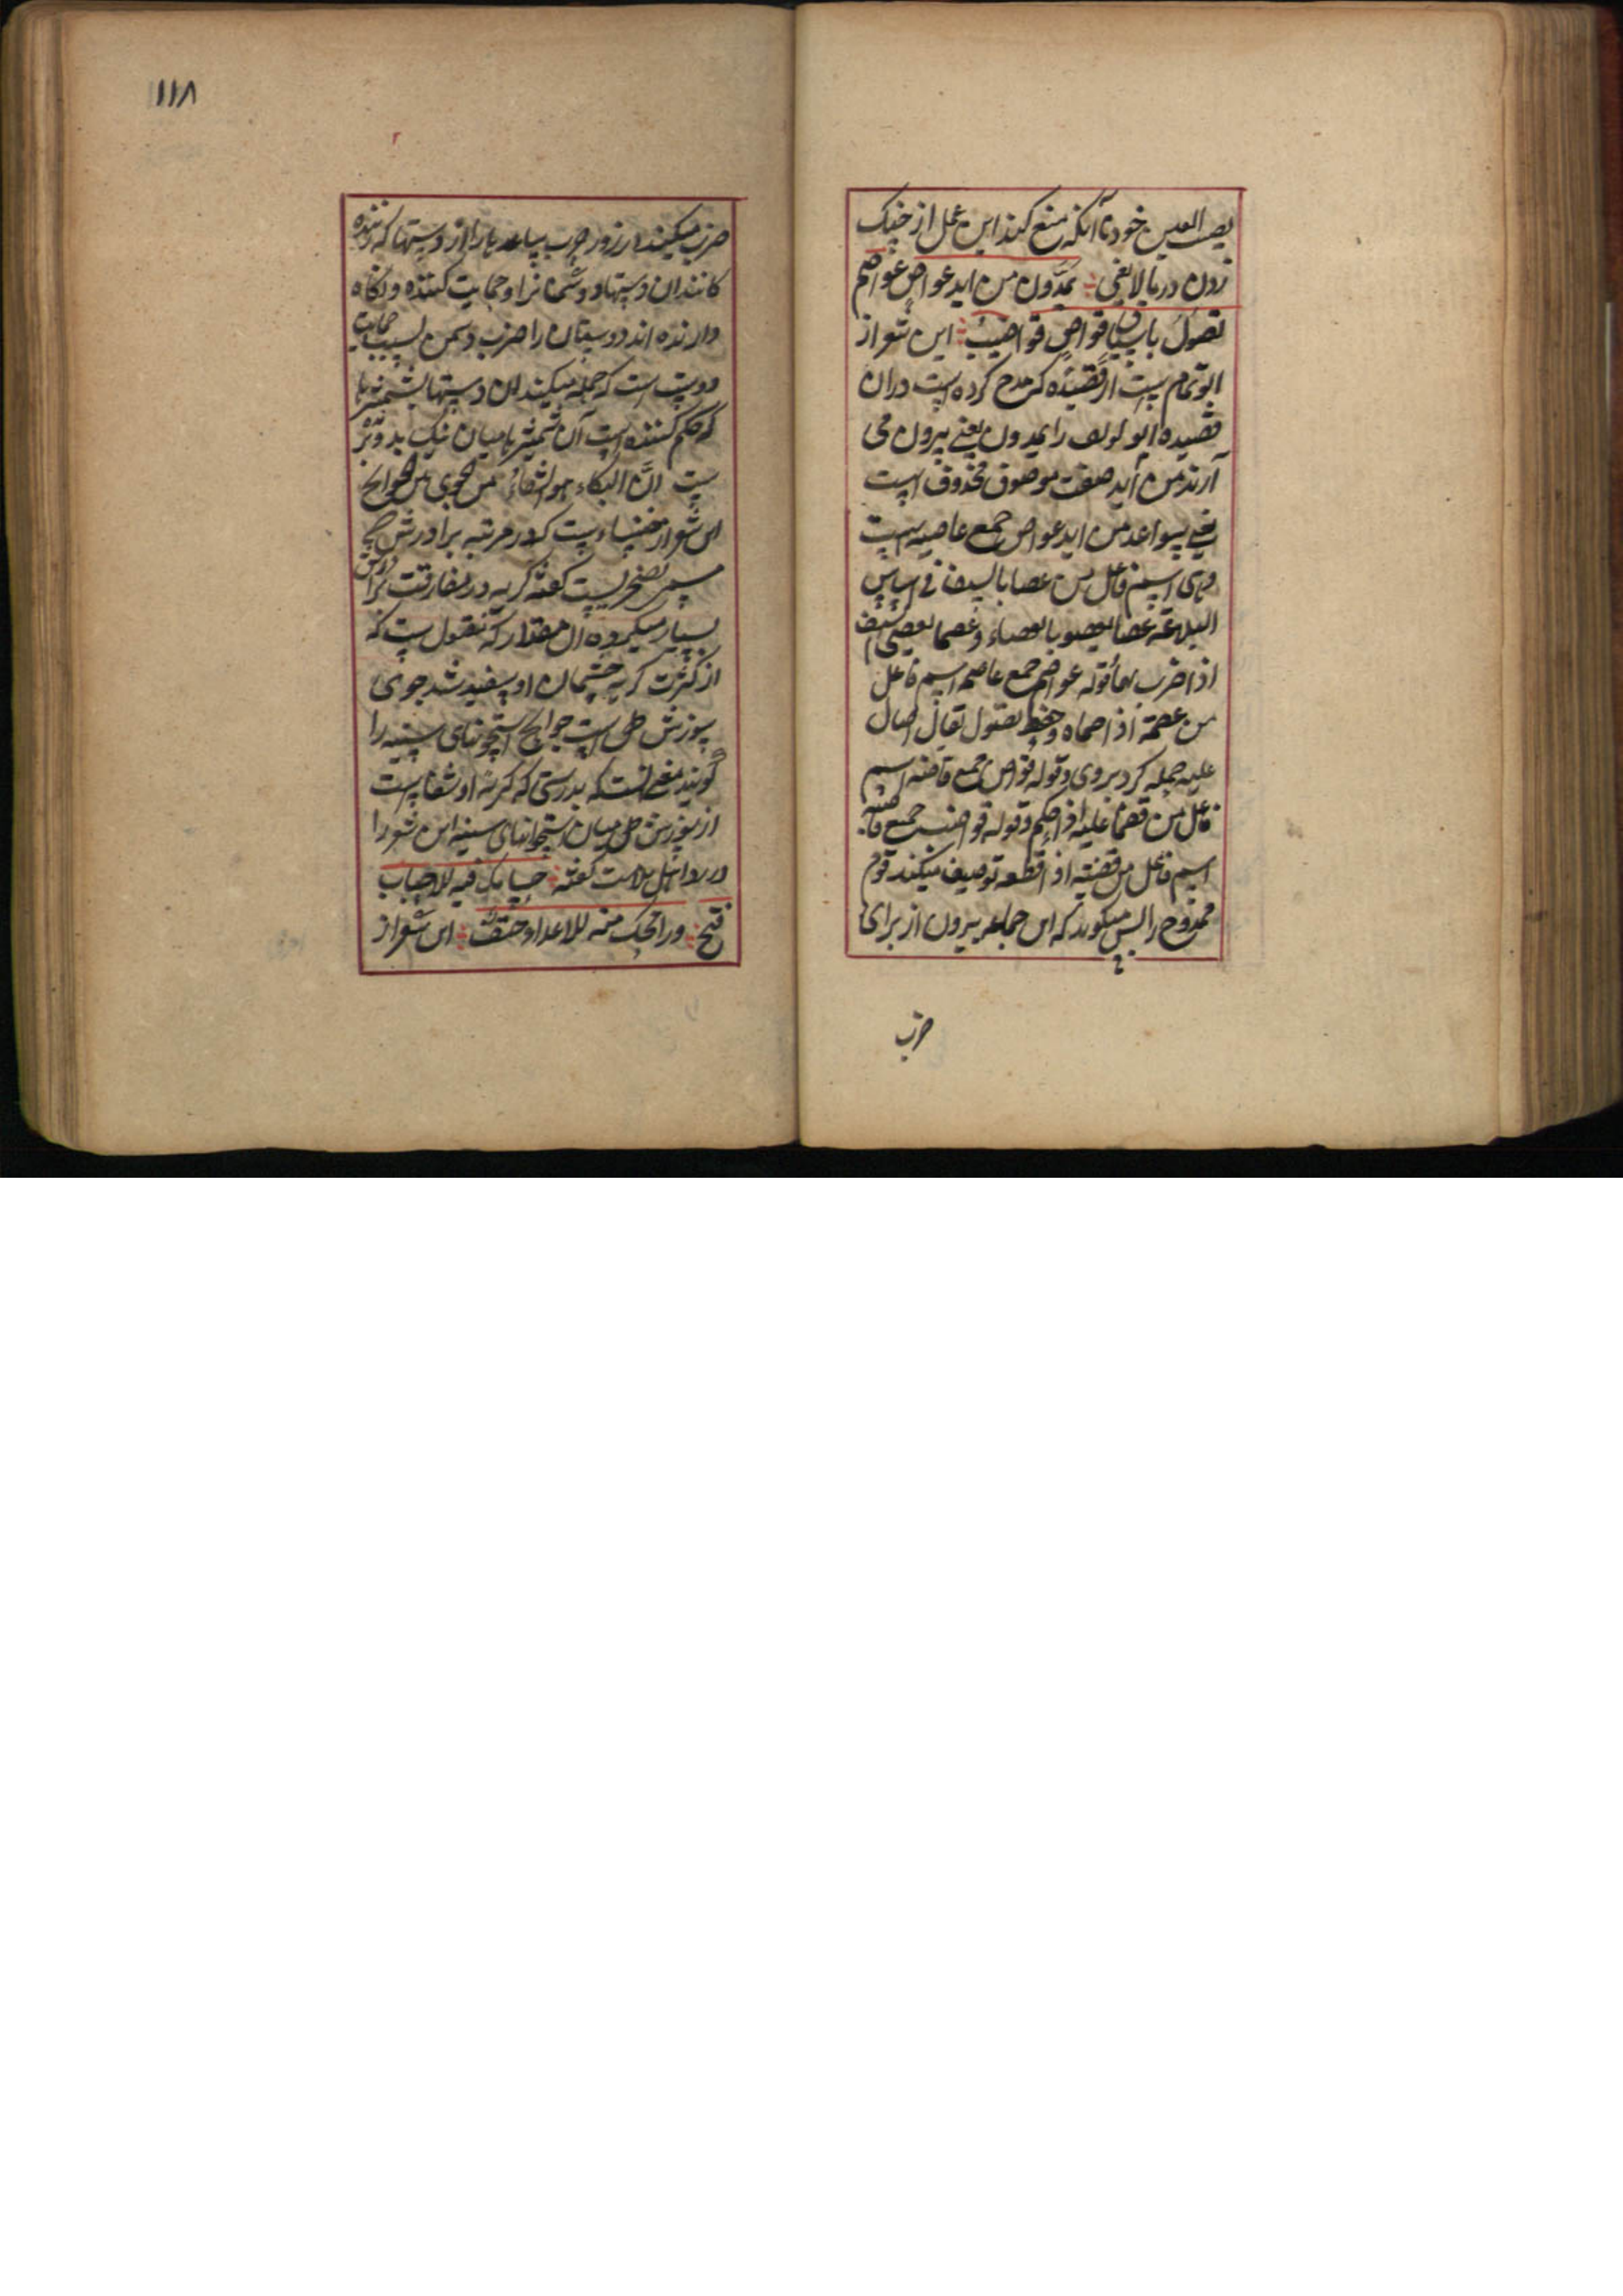 نصب العین خود تا آنکه منع کند این عمل از جنک
زدن در بالا یعنی یمدون من اید عواص عواصم
تصول باسیاف قواض قواضب این شعر از
ابو تمام است از قصیده که مدح کرده است در ان
قصیده ابو لولف را یمدون یعنی بیرون می
آرند من اید صفت موصوف محذوف است
یعنی سواعد من اید عواص جمع عاصیه است
وی اسم فاعل من عصا بالسیف فی اساس
البلاغه عصا یعصو بالعصاء و عصا یعصی السیف
اذا ضرب بهما قوله عواصم جمع عاصم اسم فاعل
من عصمه اذا حماه و حفظ تصول یقال صال
علیه حمله کرد بروی و قوله قواض جمع قاضیه اسم
فاعل من قضا علیه اذا حکم و قوله قواضب جمع قاضبه
اسم فاعل من قضبه اذا قطعه توصیف میکند قوم
ممدوح را پس میکوید که این جماعه بیرون از برای
ضرب
۱۱۸
ضرب میکنند در روز حرب ساعد ها را از دستها که زننده
کانند ان دستها دشمنانرا و حمایت کننده و نکاه
دارنده اند دوستان را ضرب دشمن بسبب حمایت
دوست است که حمله میکند ان دستها بشمشیر ها
که حکم کننده است آن شمشیر ها میان نیک بد و تیز
ست ان البکاء هو الشفاء من الجوی بین الجوانح
این شعر از خنساء است که در مرتبه برادرش که
مسمی بصخر است کفته کریه در مفارقت برادرش
بسیار میکرده آن مقدار که منقول است که
از کثرت کریه چشمان او سفید شد جوی
سوزش دل است جوانح استخوانهای سینه را
کویند معنی انست که بدرستی که کریه او شفا است
از سوزش دل میان استخوانهای سینه این شعر را
در رد اهل ملامت کفته حسامک فیه للاحباب
فتح ورمحک منه للاعداء حتف این شعر از